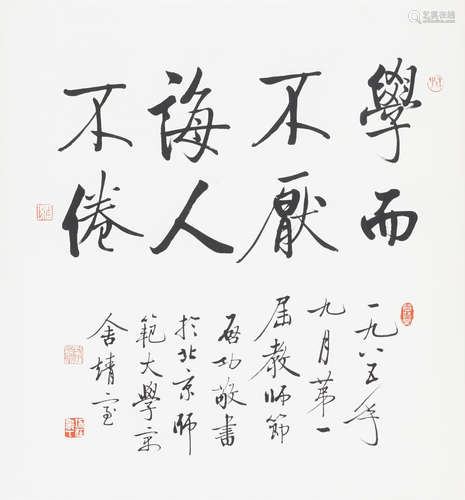 學而
不厭
誨人
不倦
一九八五年
九月第一
屆教師節
啟功敬書
於北京師
範大學宿
舍靖室
艺狐在线